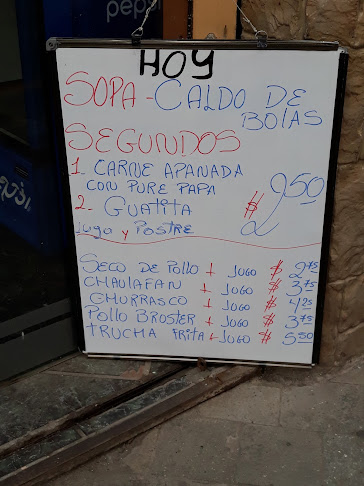 pepsi
HOY
SOPA - CALDO DE
BOLAS
SEGUNDOS
1. CARNE APANADA
CON PURE PAPA
2- GUATITA
$ 2,50
Jugo y POSTRE
SECO DE POLLO + JUGO $ 2,75
CHAULAFAN + JUGO $ 3,75
CHURRASCO + JUGO $ 4,25
POLLO BROSTER + JUGO $ 3,75
TRUCHA FRITA + JUGO $ 5,50
pepsi